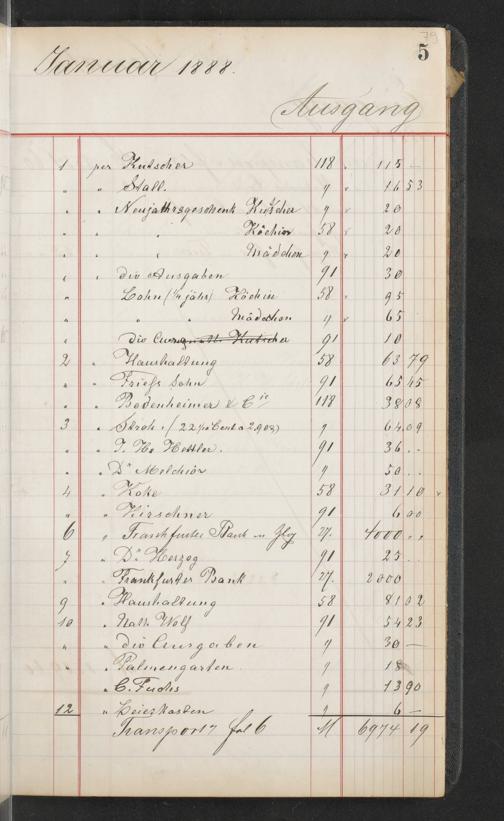 79
5
Januar 1888.
Ausgang
1 per Kutscher 118 115 —
" " Stall. " 16 53
" " Neujahrsgeschenk Kutscher " 20
" " " Köchin 58 20
" " " Mädchen " 20
" " div Ausgaben 91 30
" Lohn (1/4 jähr) Köchin 58 95
" " " Mädchen " 65
" div 91 10
2 " Haushaltung 58 63 79
" " Sohn 91 65 45
" " Bodenheimer & Cie 118 38 08
3 " Stroh " 64 09
" " Hettler. 91 36 ..
" " Dr Melchior " 50 ..
4 " Koke 58 31 10
" " Hirschner 91 6 00
6 " Frankfurter Bank 27. 4000 ..
7 " Dr Herzog 91 25 ..
" " Frankfurter Bank 27. 2000
9 " Haushaltung 58 81 02
10 " Nath Wolf 91 54 23
" " div Ausgaben " 30 —
" " Palmengarten " 18
" C. Fuchs " 13 90
12 " " 6 —
Transport fol 6 M 6974 19